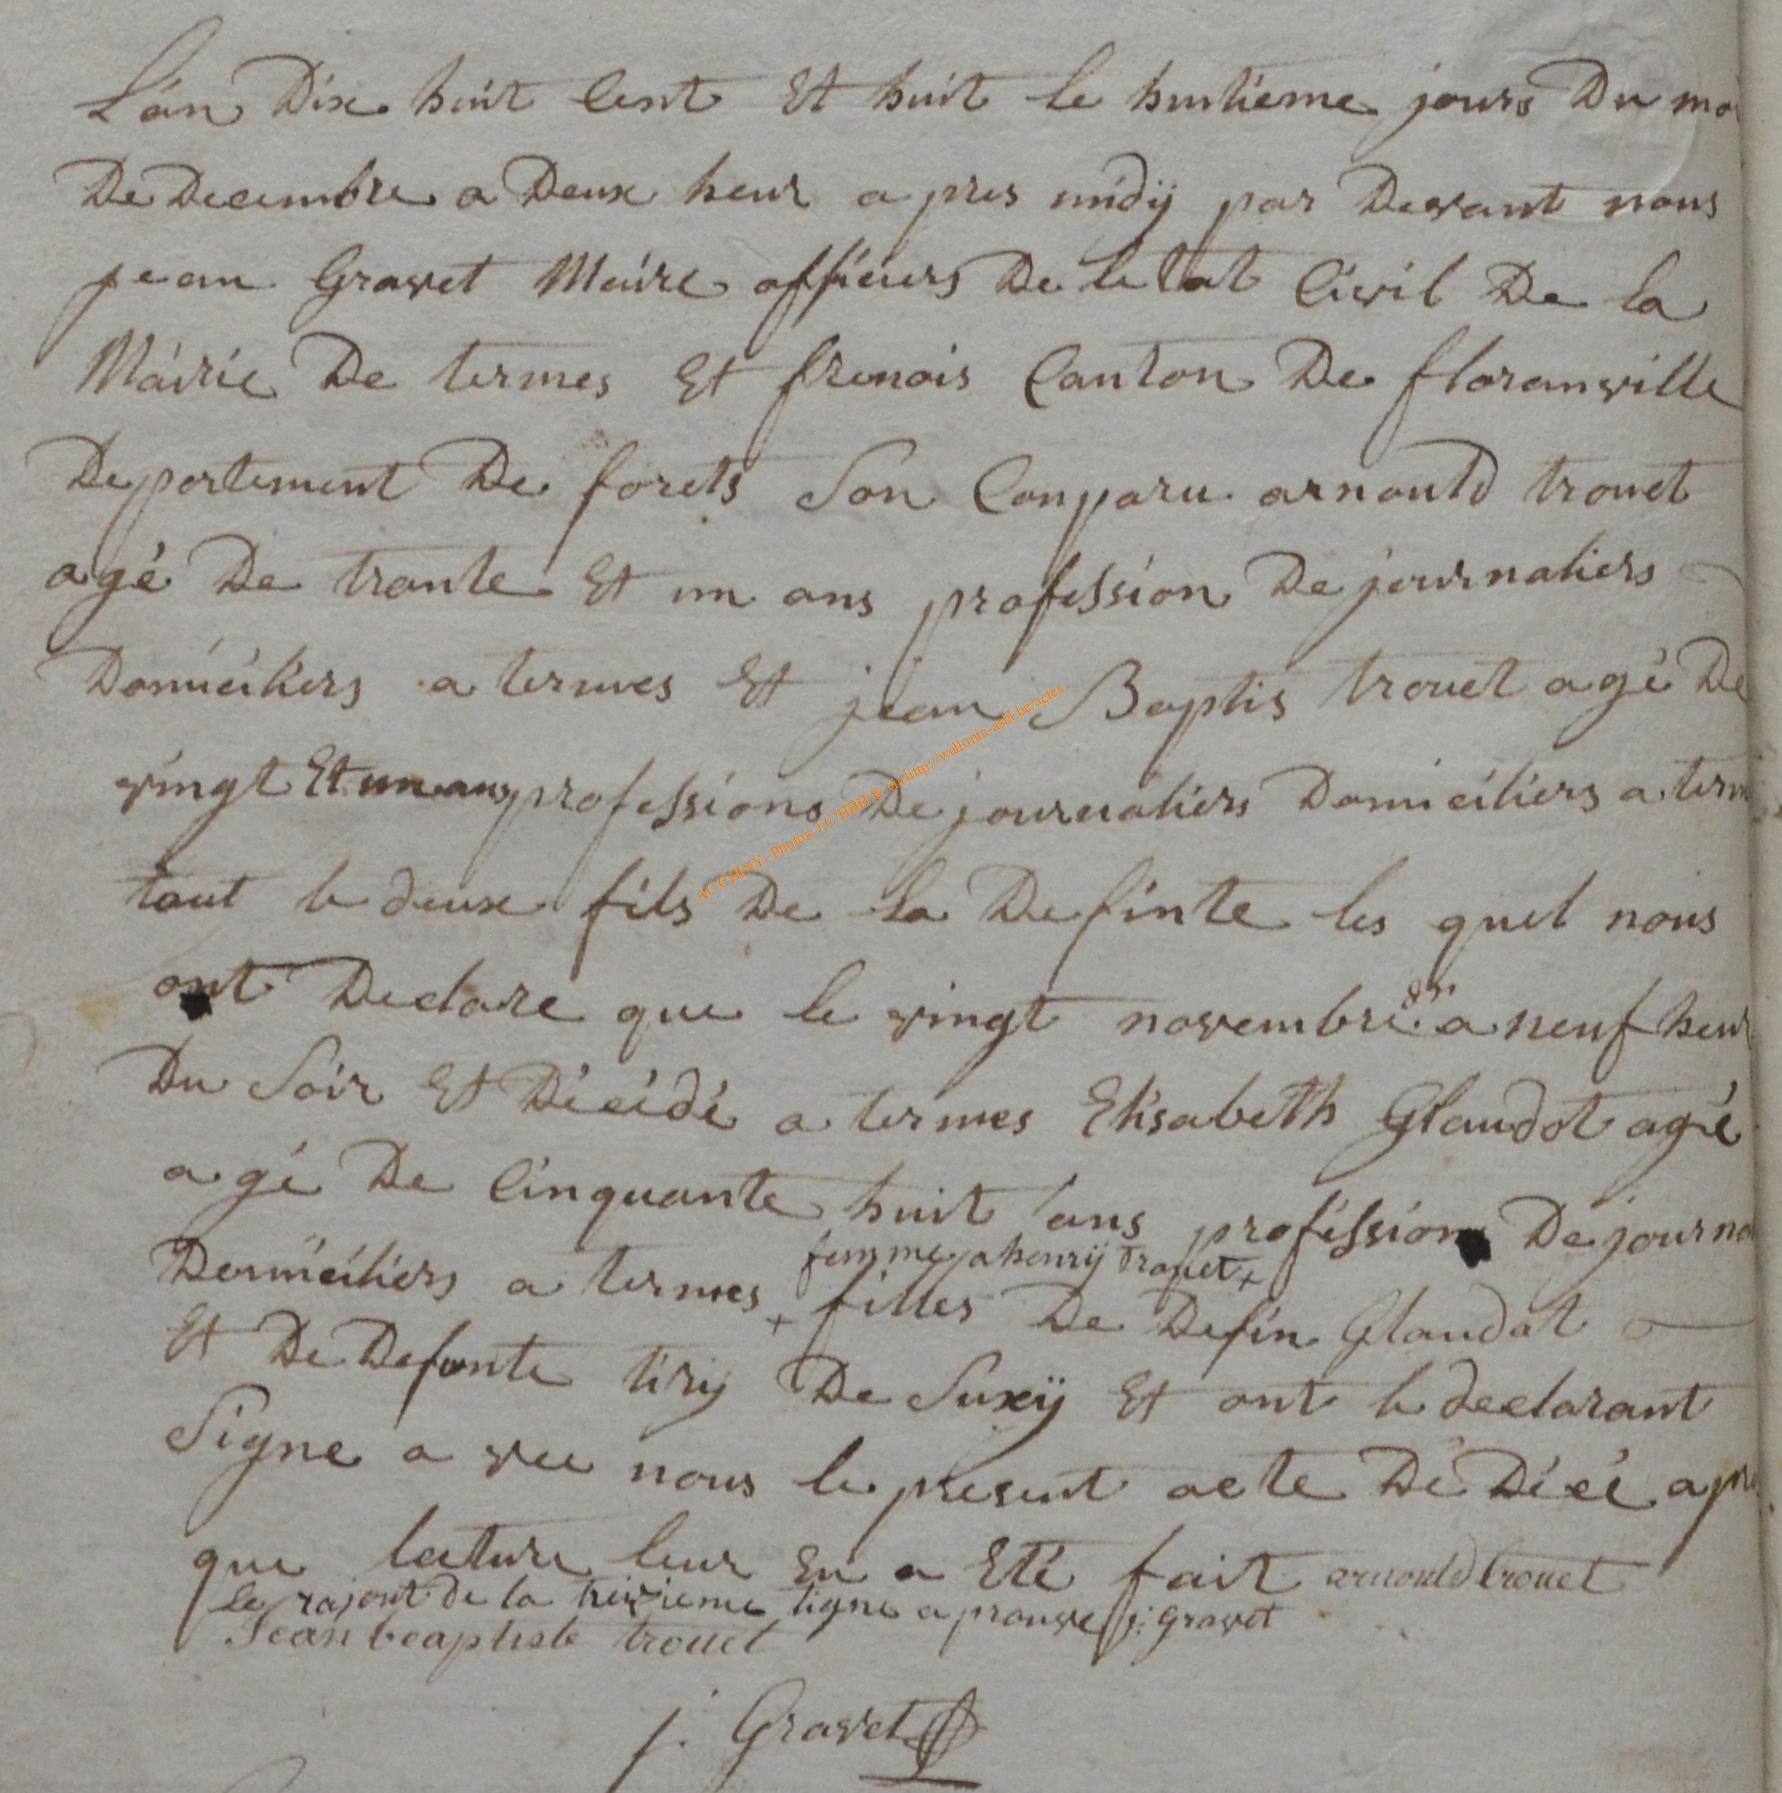 L'an Dix huit Cent Et huit le huitieme jours Du moi
De Decembre a Deux heur a pres midÿ par Devant nous
jean Gravet Maire officiers De letat Civil De la
Mairie De termes Et frenois Canton De floranville
Departement De forets Son Conparu arnould trouet
agé De trante Et un ans profession De journaliers
Domiciliers a termes Et jean Baptis trouet agé De
vingt Et un ans professions De journaliers Domiciliers a term
tout le deux fils De la Definte les quel nous
ont Declare que le vingt novembre dr a neuf heur
Du Soir Et Décidé a termes Elisabeth Glaudot agé
agé De Cinquante huit ans profession De journa
femme a henrÿ trouet +
Domiciliers a termes + filles De Defin Glaudot
Et De Defunte tirÿ De Suxÿ Et ont le declarant
Signe a vec nous le present acte De Décé apre
que lecture leur En a Eté fait arnould trouet
le rajout de la treizieme ligne aprouve j: gravet
Jean beaptiste trouet
j. Gravet
ACCHINY - Photos J.C HBH © via http://wallonia-asbl.be/actes